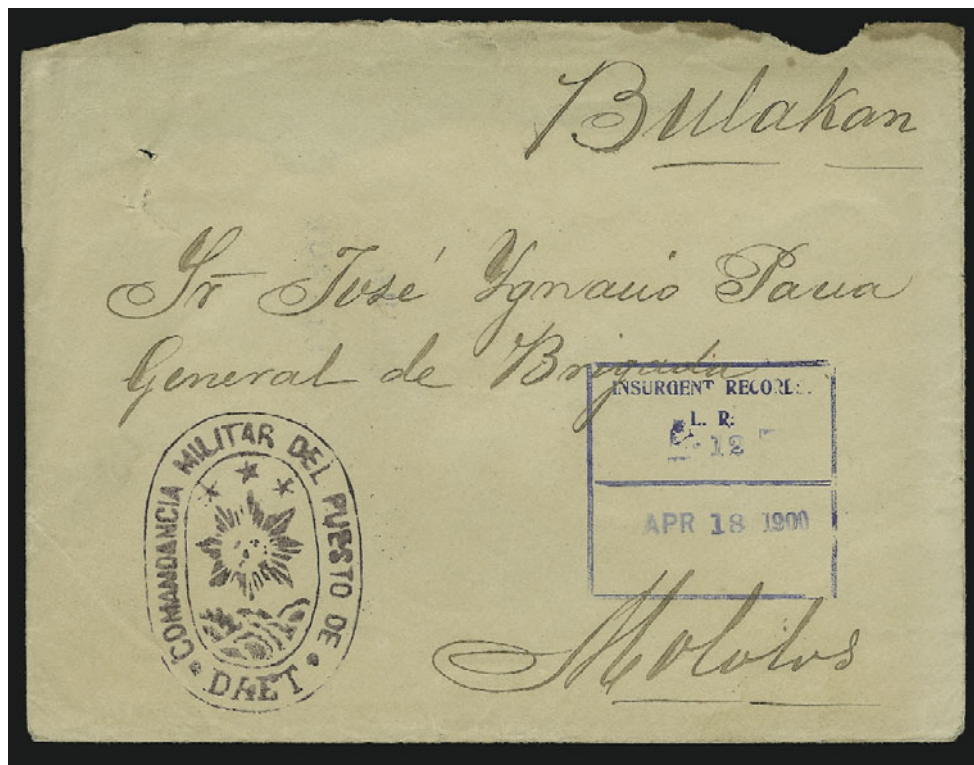 Bulakan
Sr José Ygnacio Paua
General de Brigada
INSURGENT RECORDS.
L. R.
12
APR 18 1900
COMANDANCIA MILITAR DEL PUESTO DE
DAET
Mololos